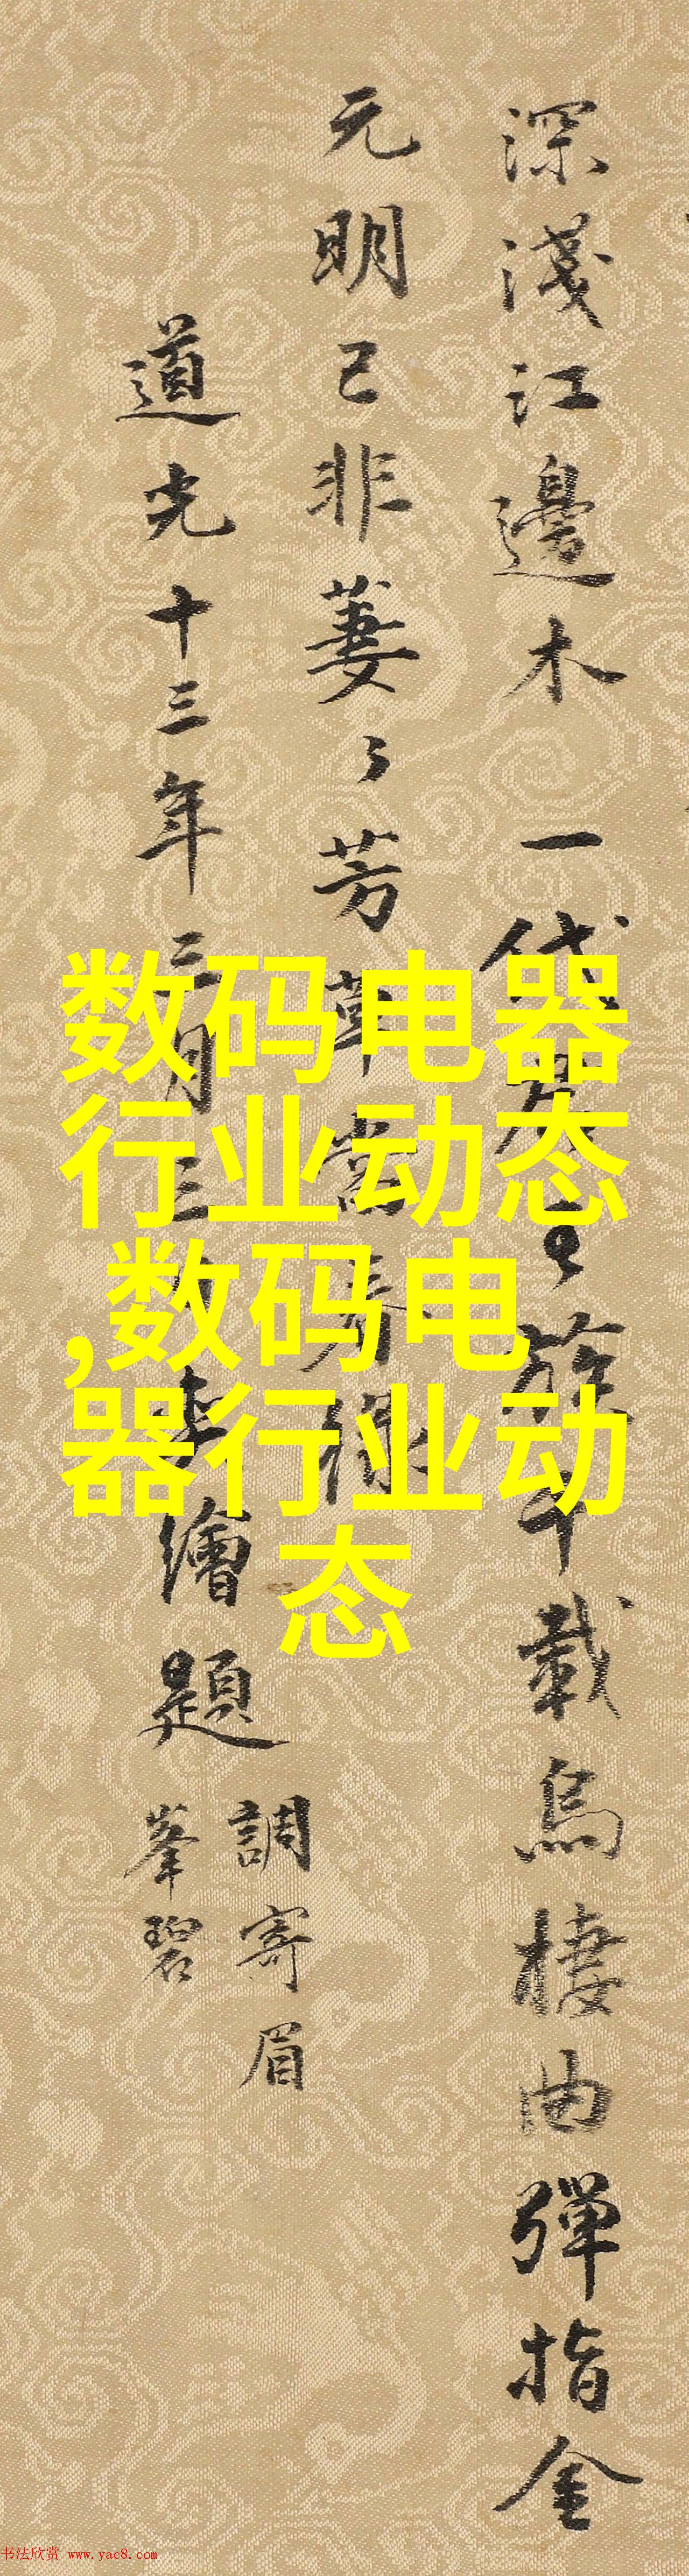 深淺江邊木一代琴
千載烏棲曲彈指金
元明已非萋々芳草當春綠
道光十三年三月三
繪題
調寄眉
峯碧
数码电器
行业动态
,数码电
器行业动
态
书法欣赏 www.yac8.com